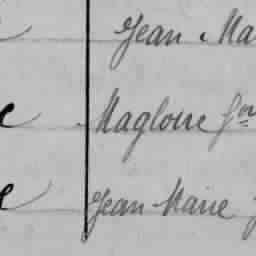 Jean Ma
Magloire
Jean Marie